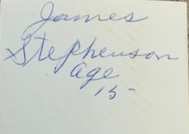 James
Stephenson
age
15